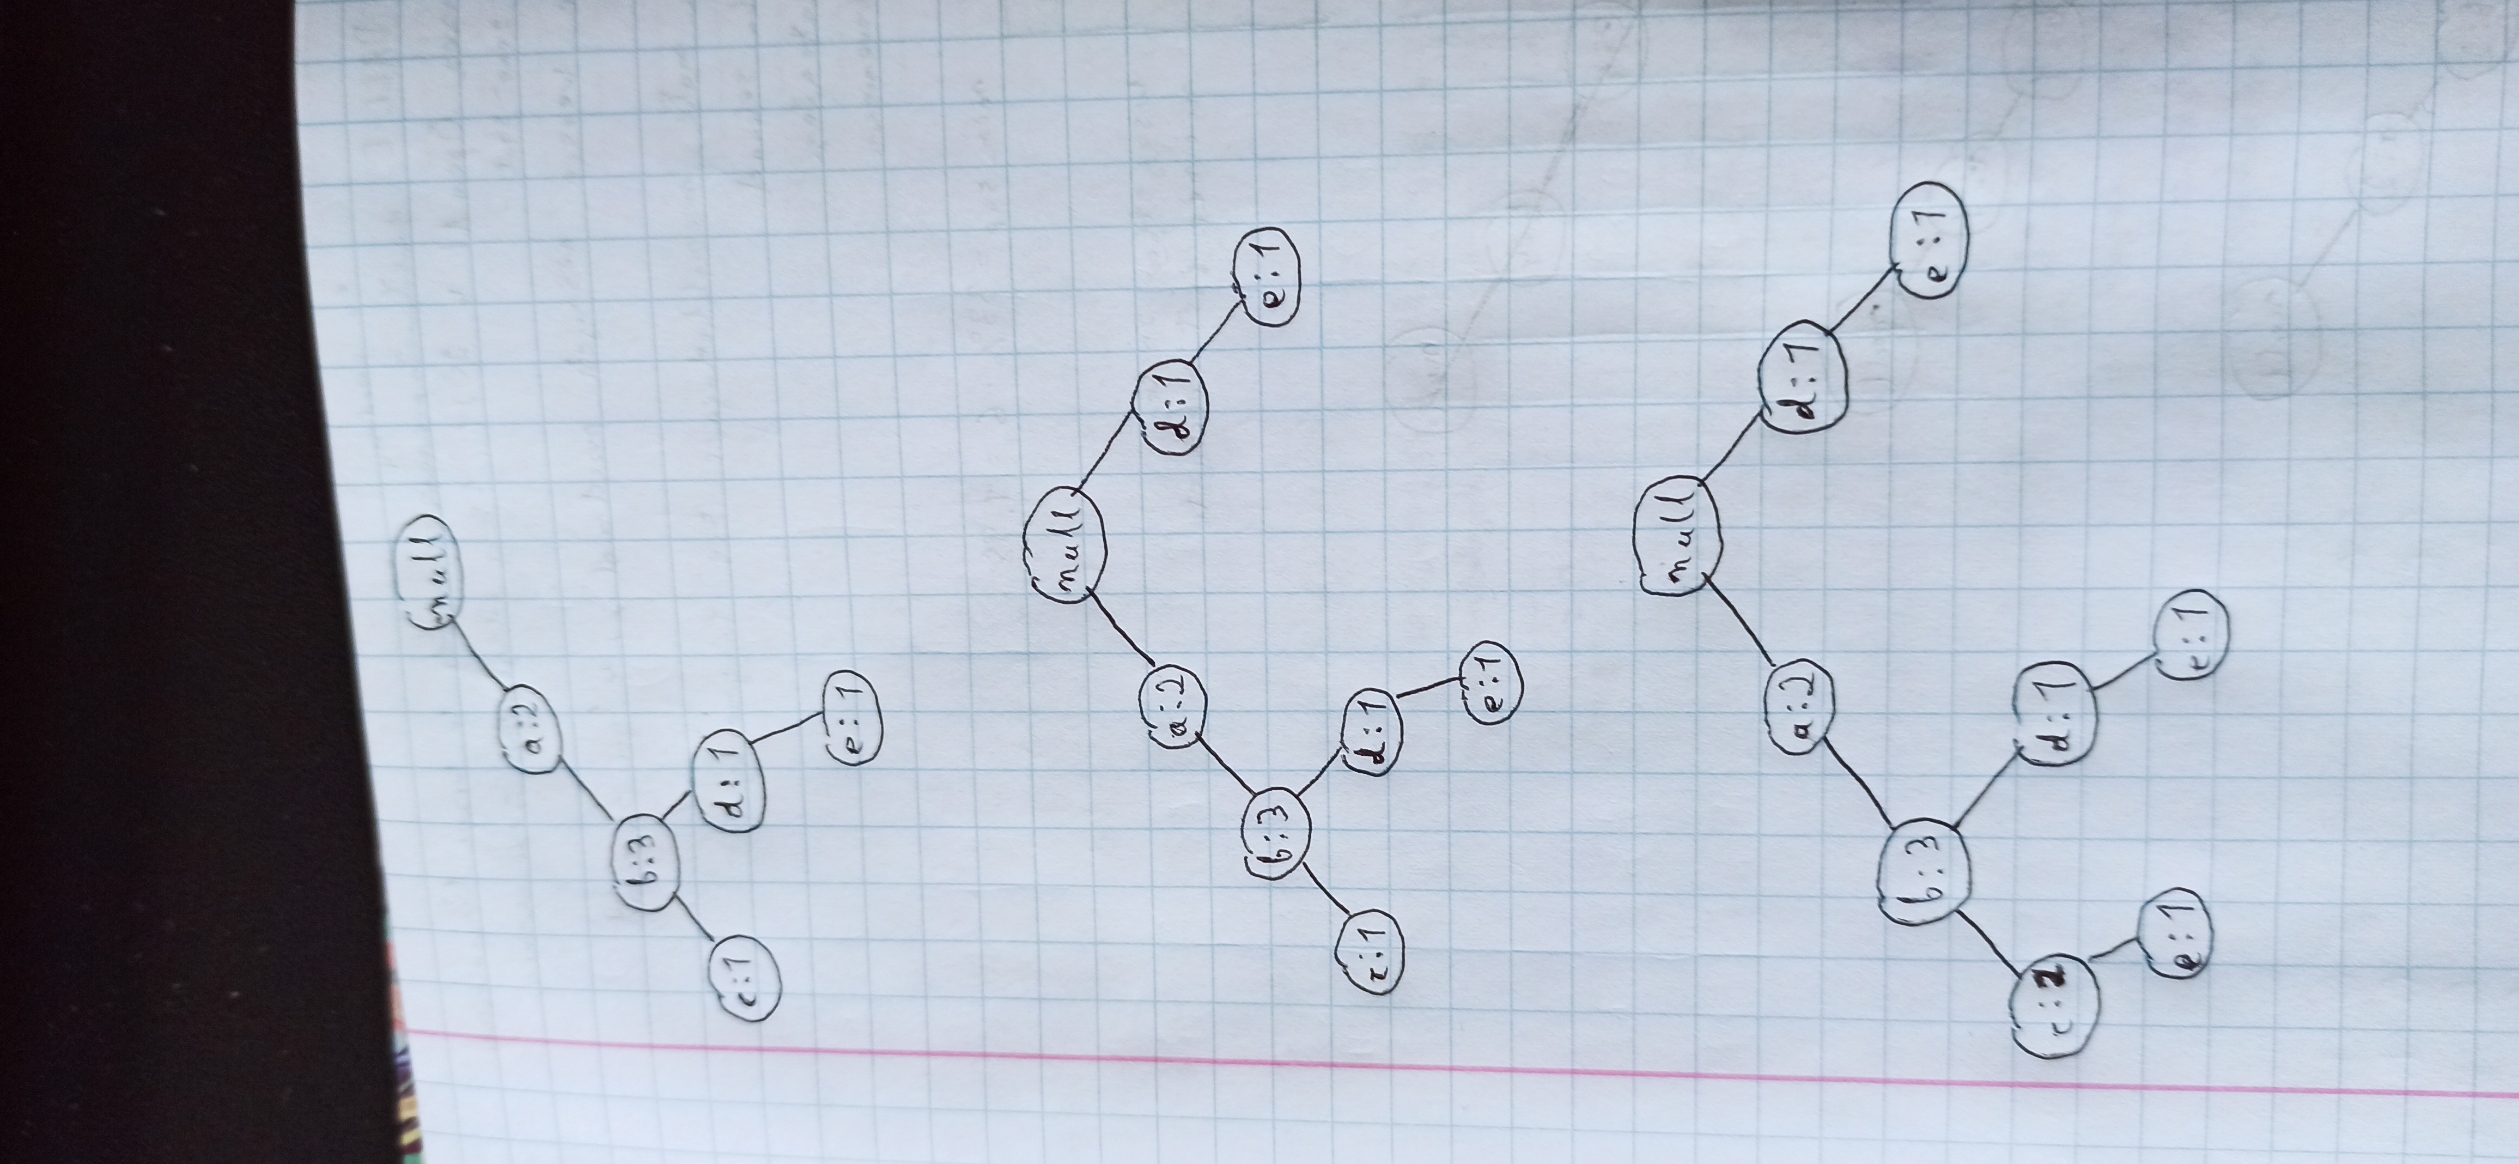 null
a:2
b:3
c:1 d:1
e:1
null
a:2 d:1
b:3 e:1
c:1 d:1
e:1
null
a:2 d:1
b:3 e:1
c:2 d:1
e:1 e:1